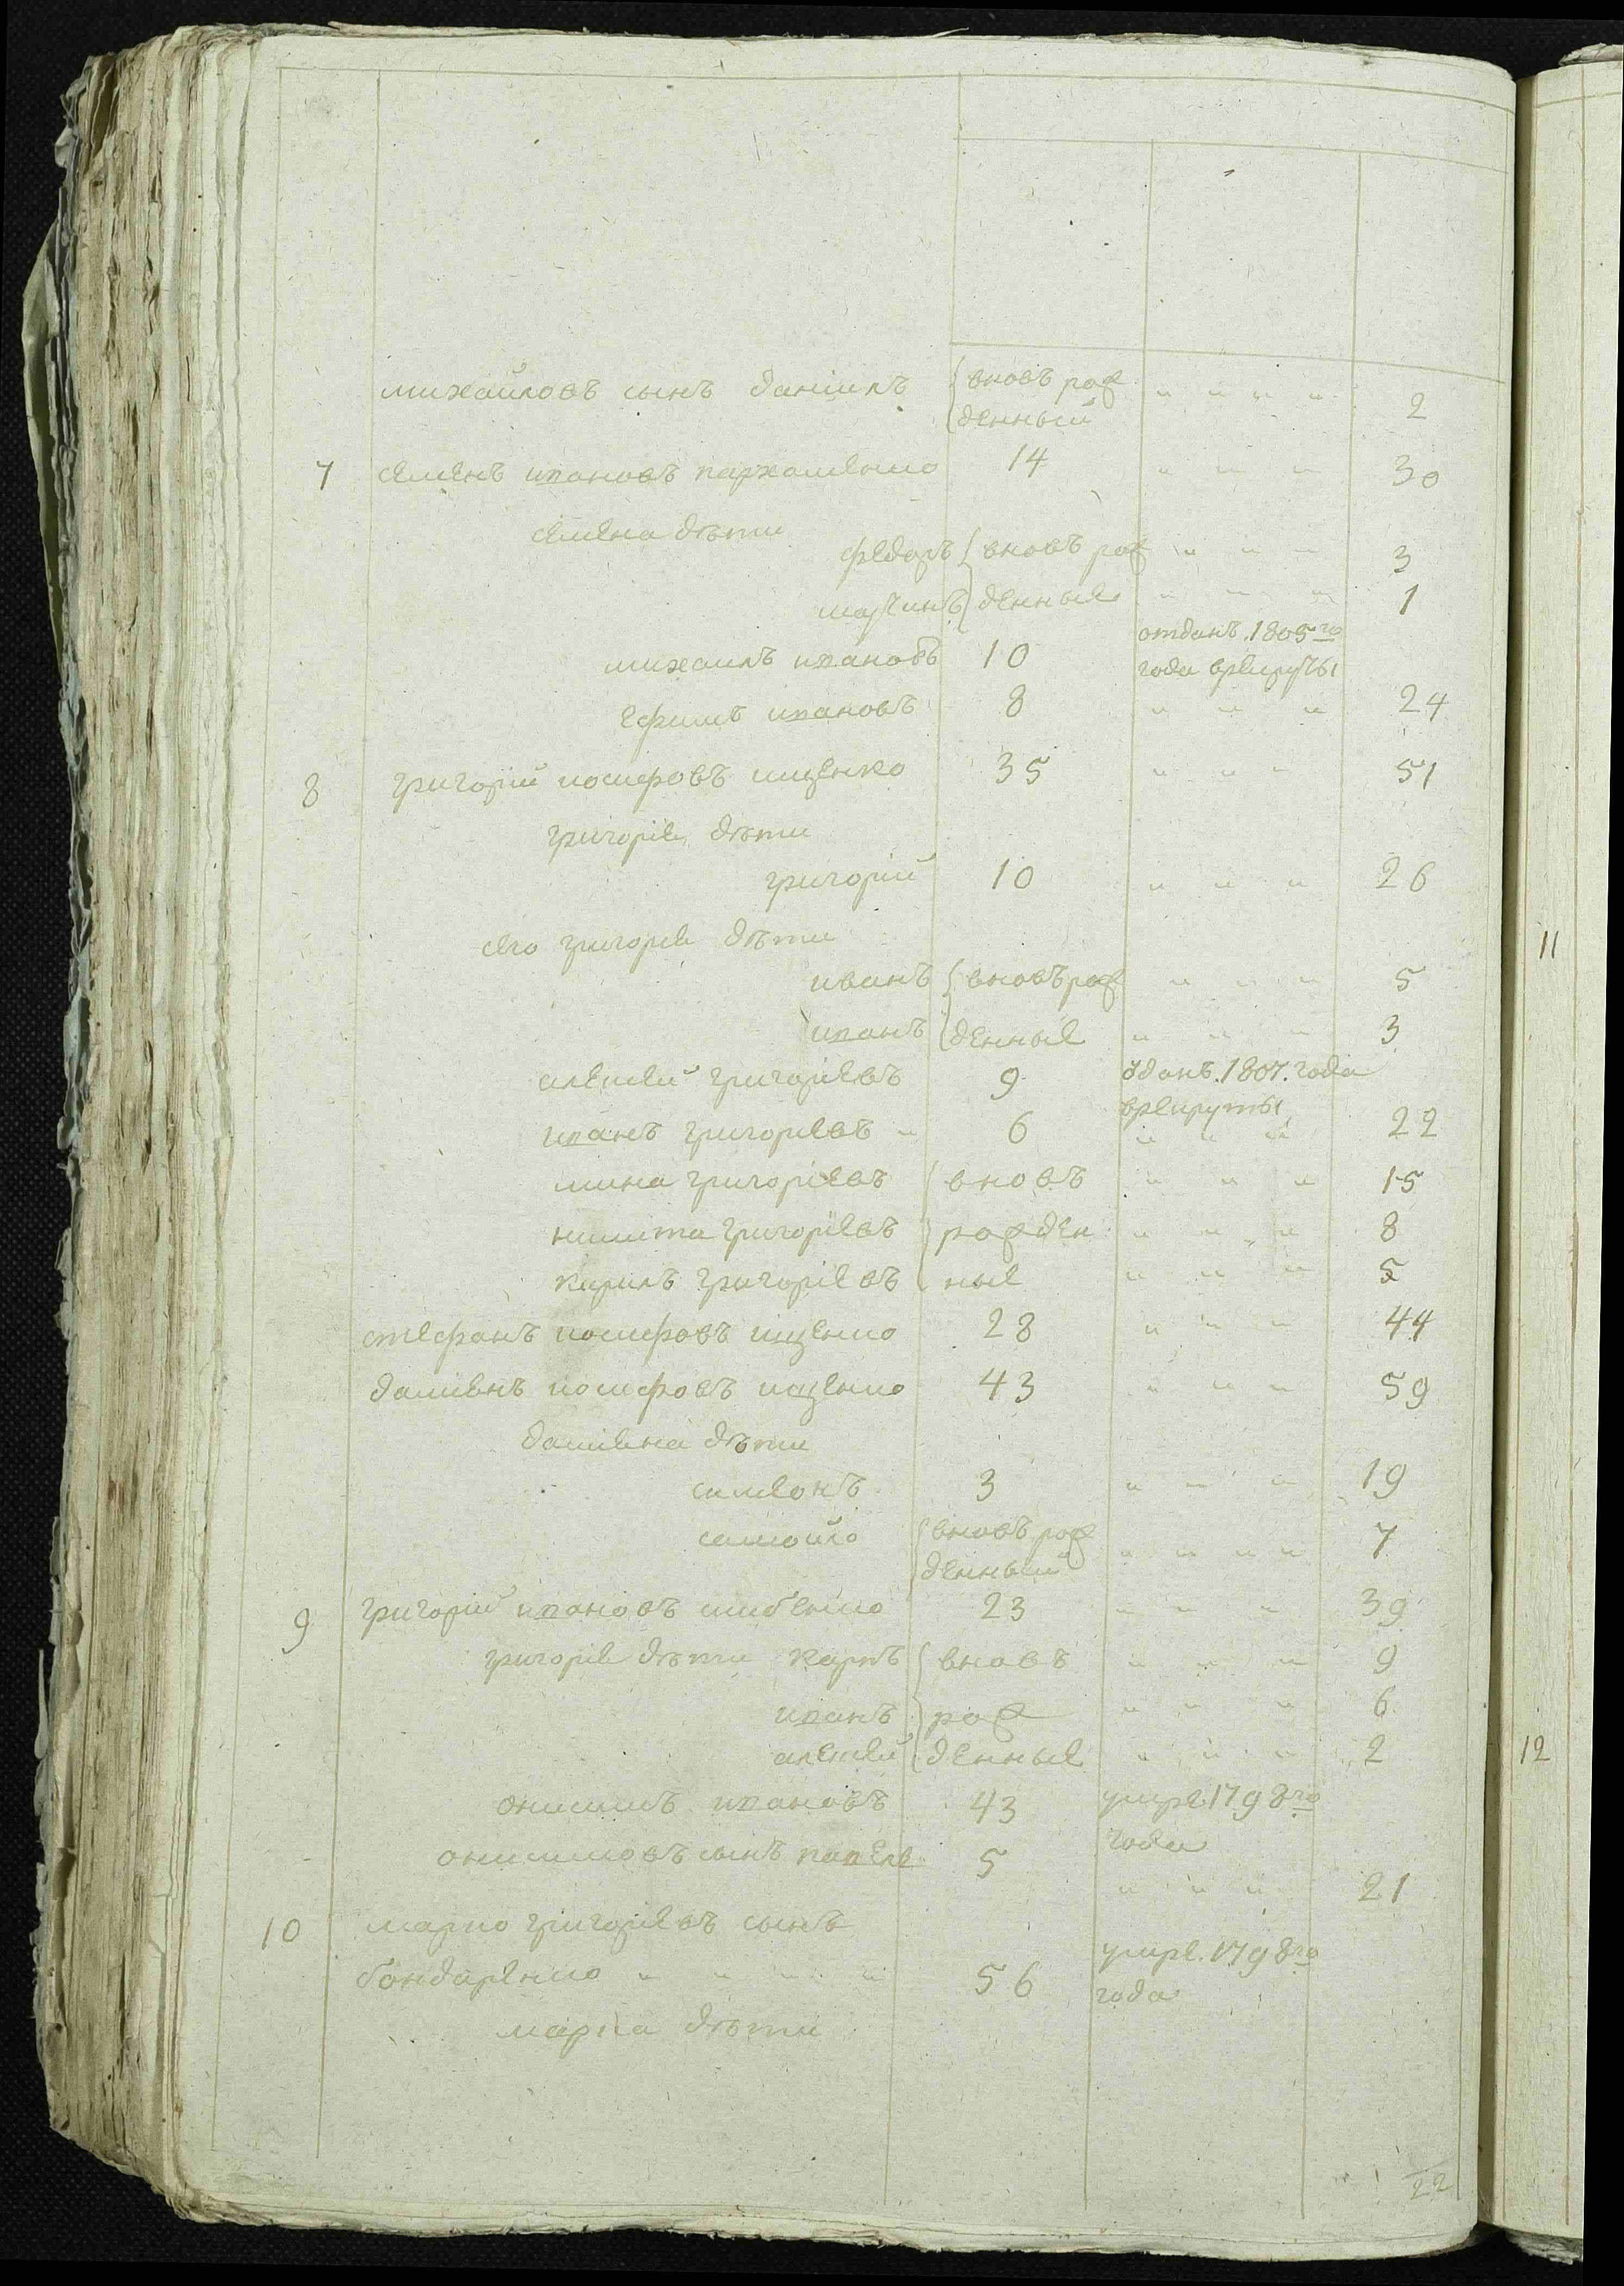 михайловъ сынъ данiилъ вновь рож „ „ „ „ 2
денный
7 семенъ ивановъ пархоменко 14 „ „ „ 30
семена дѣти
федоръ вновь рож „ „ „ 3
мартинъ денные „ „ „ 1
михаилъ ивановъ 10 отданъ 1805го
года врекруты
ефимъ ивановъ 8 „ „ „ 24
8 григорiй иосифовъ ищенко 35 „ „ „ 51
григорiя дѣти
григорiй 10 „ „ „ 26
сего григорiя дѣти
иванъ вновь рож „ „ „ 5
иванъ денные „ „ „ 3
алексей григорiевъ 9 отданъ 1807 года
врекруты
иванъ григорiевъ „ 6 „ „ „ 22
мина григорiевъ вновь „ „ „ 15
никита григорiевъ рожден „ „ „ 8
кирилъ григорiевъ ные „ „ „ 5
стефанъ иосифовъ ищенко 28 „ „ „ 44
дамиянъ иосифовъ ищенко 43 „ „ „ 59
дамияна дѣти
симеонъ 3 „ „ „ 19
самойло вновь рож „ „ „ „ 7
денный
9 григорiй ивановъ 23 „ „ „ 39
григорiя дѣти карпъ вновь „ „ „ 9
иванъ рож „ „ „ 6
алексей денные „ „ „ 2
онисимъ ивановъ 43 умре 1798го
года
онисимовъ сынъ павелъ 5 „ „ „ 21
10 марко григорiевъ сынъ
бондаренко „ „ „ „ 56 умре 1798го
года
марка дѣти
22
11
12